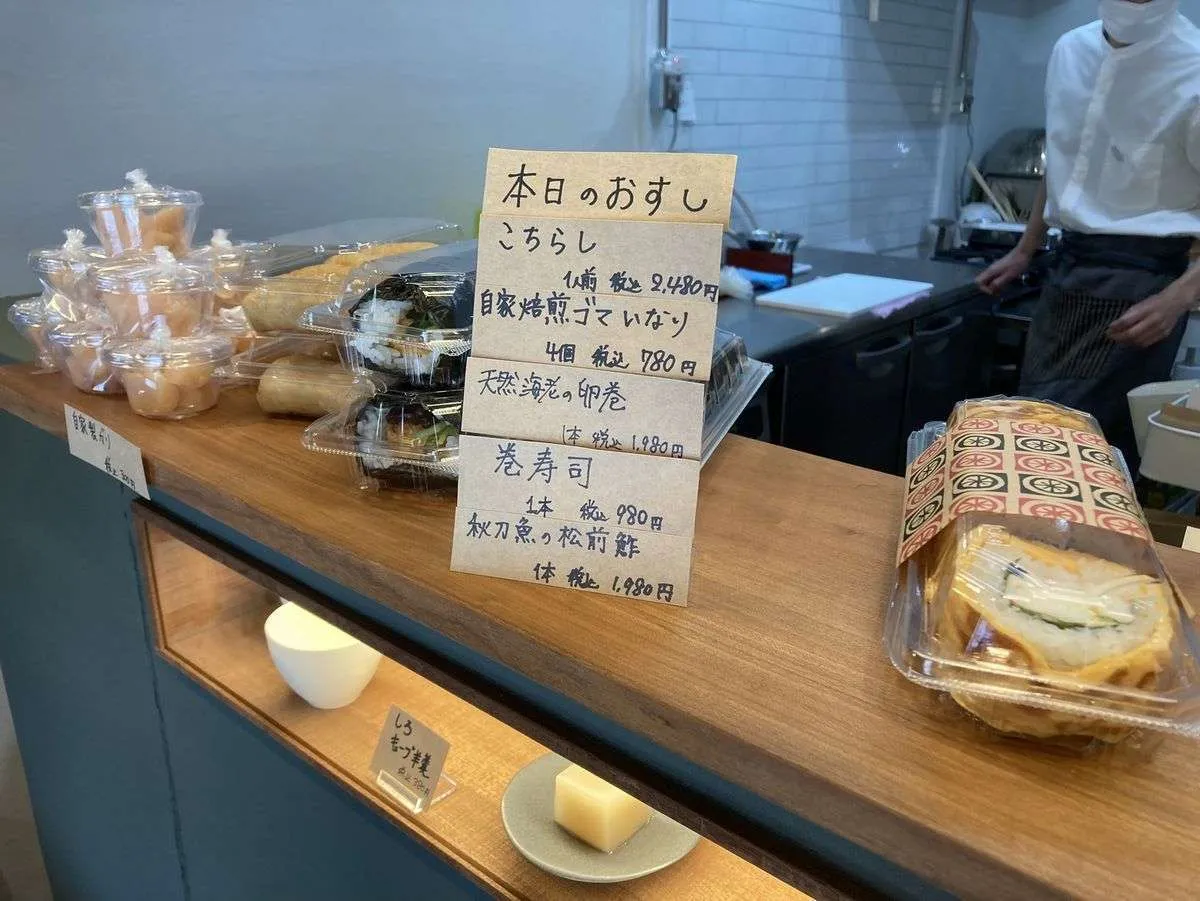 本日のおすし
こちらし
1人前 税込 2,480円
自家焙煎ゴマいなり
4個 税込 780円
天然海老の卵巻
1本 税込 1,980円
巻寿司
1本 税込 980円
秋刀魚の松前鮓
1本 税込 1,980円
自家製ガリ
税込 300円
しろ
キューブ羊羹